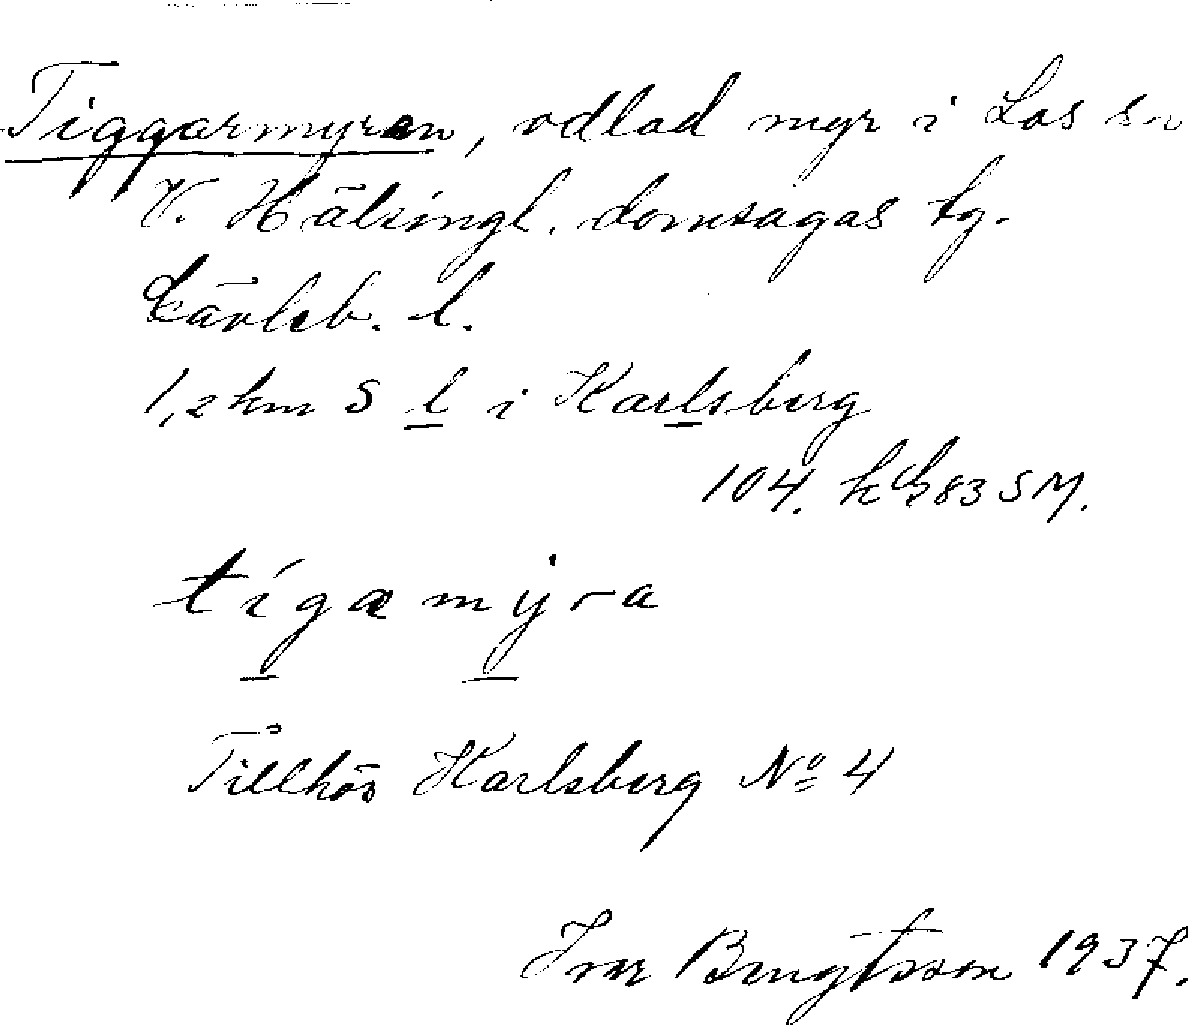 Tiggarmyren, odlad myr i Los sn
V. Hälsingl. domsagas tg.
Gävleb. l.
1,2 km S l i Karlsberg
104. 83 SM.
tigæmýra
Tillhör Karlsberg No 4
Ivar Bengtsson 1937.